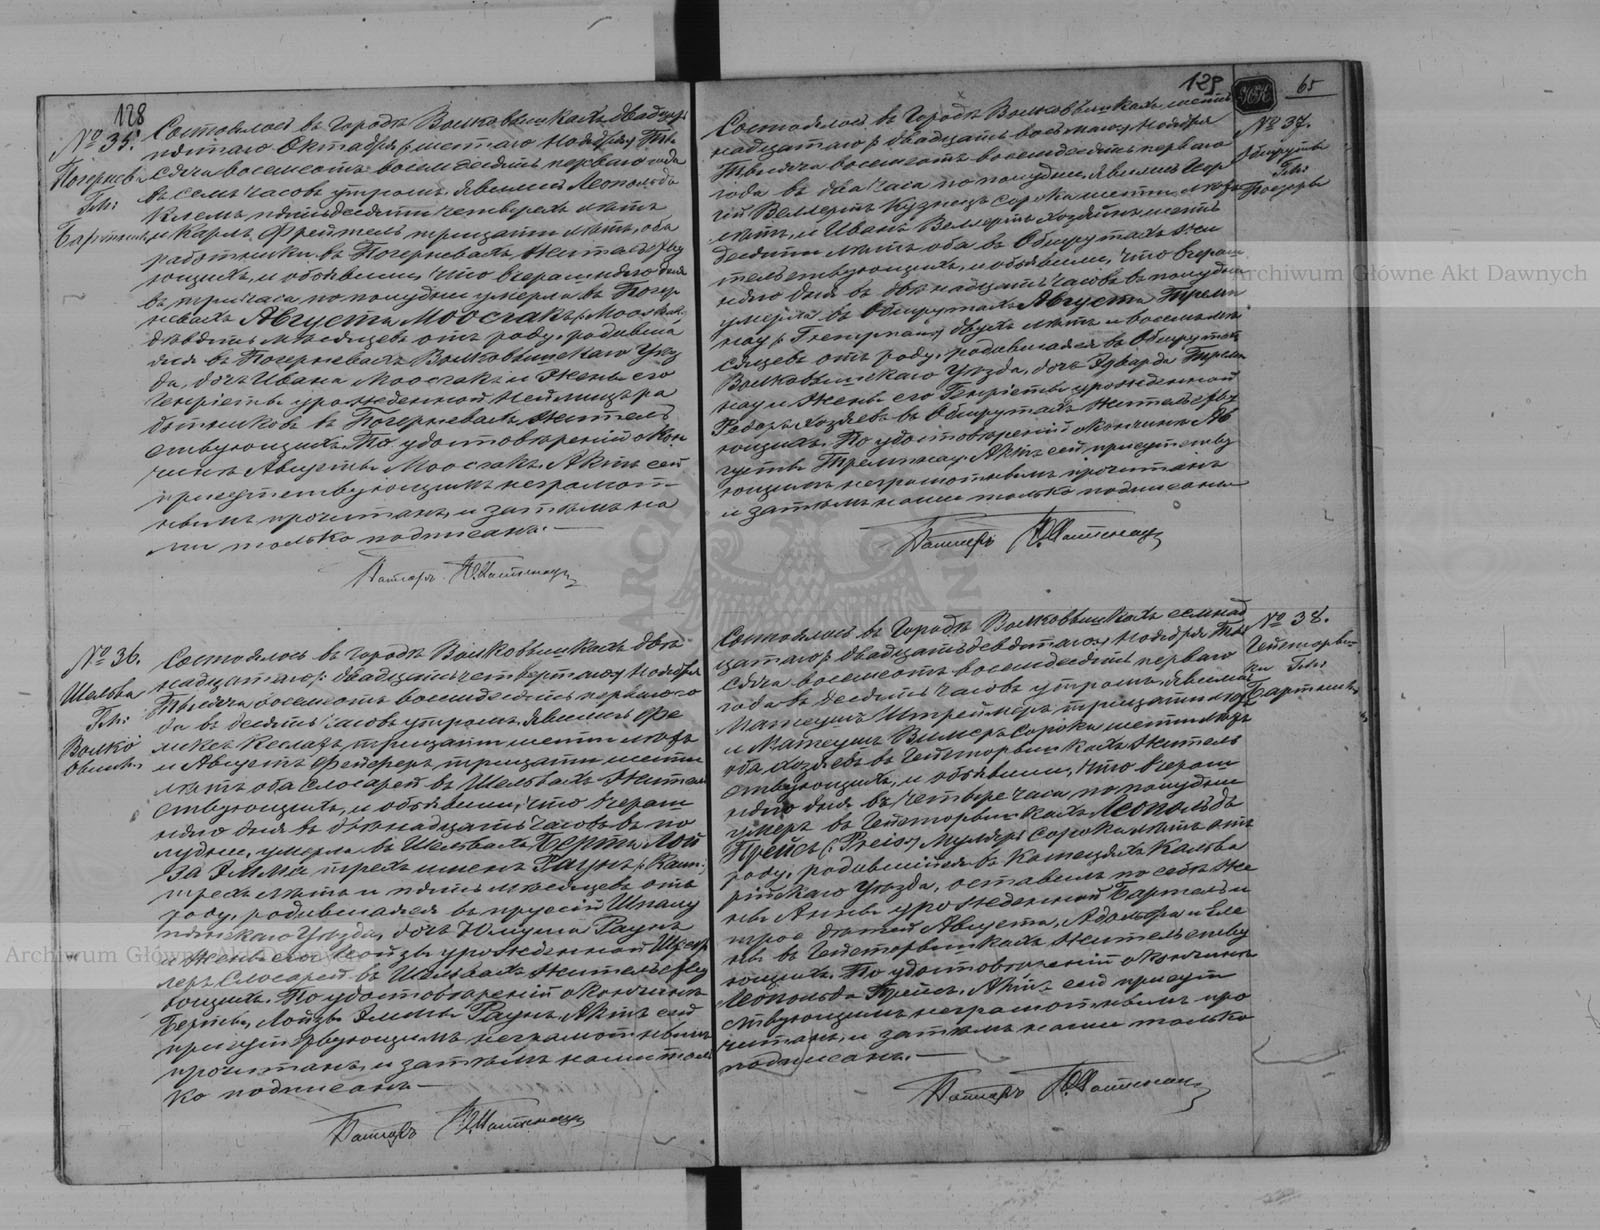 128
№ 35.
Погернева
Гм:
Бартники
Состоялось въ Городѣ Волковышкахъ двадцать
пятаго Октября /: шестаго Ноября :/ Ты-
сяча восемсотъ восемдесятъ перваго года
въ семь часовъ утромъ. Явились Леопольдъ
Клемъ, пятьдесяти четырехъ лѣтъ
и Карлъ Фрейтель, тридцати лѣтъ, оба
работники въ Погерневахъ жительству
ющіе, и объявили, что вчерашняго дня
въ три часа по полудни умерла въ Погер
невахъ Августа Моосгакъ
девять мѣсяцевъ отъ роду, родивша
яся въ Погерневахъ Волковышскаго Уѣз
да, дочь Ивана Моосгакъ и Жены его
Генріеты урожденной Неймицъ ра
ботниковъ въ Погерневахъ Житель
ствующихъ. По удостовѣреніи о кон
чинѣ Августы Моосгакъ. Актъ сей
присутствующимъ неграмот-
нымъ прочитанъ, и затѣмъ на
ми только подписанъ. —
Пасторъ
№ 36.
Шельва
Гм:
Волко
вышки
Состоялось въ городѣ Волковышкахъ двѣ
надцатаго /: двадцать четвертаго :/ Ноября
Тысяча восемсотъ восемдесятъ перваго го
да въ десять часовъ утромъ. Явились Фе
ликсъ Кеслеръ, тридцати шести лѣтъ
и Августъ Фейферъ, тридцати шести
лѣтъ, оба слесарей въ Шельвахъ Житель
ствующихъ, и объявили, что вчераш
няго дня въ двѣнадцать часовъ въ по
лудни, умерла въ Шельвахъ Берта Лои
за Эмма трехъ именъ Раунъ
трехъ лѣтъ и пять мѣсяцевъ отъ
роду, родившаяся въ пруссіи
Уѣзда, дочь Юлиуша Раунъ
и Жены его Лоизы урожденной
Слесарей въ Шельвахъ Жительству
ющихъ. По удостовѣреніи о кончинѣ
Берты, Лоизы Эммы Раунъ, Актъ сей
присутствующимъ неграмотнымъ
прочитанъ, и затѣмъ нами толь
ко подписанъ —
Пасторъ
129
65
№ 37.
Обшруты
Гм:
Состоялось въ Городѣ Волковышкахъ шест
надцатаго /: двадцать восьмаго :/ Ноября
Тысяча восемсотъ восемдесятъ перваго
года въ два часа по полудни. Явились
Веллертъ Кузнецъ сорока шести лѣтъ
и Иванъ Веллертъ хозяинъ шесть
десяти лѣтъ оба въ Обшрутахъ жи
тельствующихъ, и объявили, что вчераш
няго дня въ двѣнадцать часовъ въ полудни
умерла въ Обшрутахъ Августа Тремп
нау двухъ лѣтъ и восемь мѣ
сяцевъ отъ роду, родившаяся въ Обшрутахъ
Волковышскаго Уѣзда, дочь Эдварда Тремп
нау и Жены его Генріеты урожденной
хозяевъ въ Обшрутахъ Жительству
ющихъ. По удостовѣреніи о кончинѣ Ав
густы Тремпнау. Актъ сей присутству
ющимъ неграмотнымъ прочитанъ
и затѣмъ нами только подписанъ
Пасторъ
№ 38.
Гм:
Бартники
Состоялось въ Городѣ Волковышкахъ семнад
цатаго /: двадцать девятаго :/ Ноября Ты
сяча восемсотъ восемдесятъ перваго
года въ десять часовъ утромъ. Явились
Матеушъ Штреймеръ, тридцати лѣтъ
и Матеушъ Вимеръ сорока шести лѣтъ
оба хозяевъ въ Житель
ствующихъ, и объявили, что вчераш
няго дня въ четыре часа по полудни
умеръ въ Леопольдъ
Прейсъ /: Preiss :/ Муляръ сорока лѣтъ отъ
роду, родившійся въ Кальва
рійскаго Уѣзда, оставивъ по себѣ Же
ну Анну урожденной Бартель и
трое дѣтей Августа, Адольфа и Еле
ны въ Жительству
ющихъ. По удостовѣреніи о кончинѣ
Леопольда Прейсъ. Актъ сей присут
ствующимъ неграмотнымъ про
читанъ, и затѣмъ нами только
подписанъ. —
Пасторъ
Archiwum Główne Akt Dawnych
Archiwum Główne Akt Dawnych